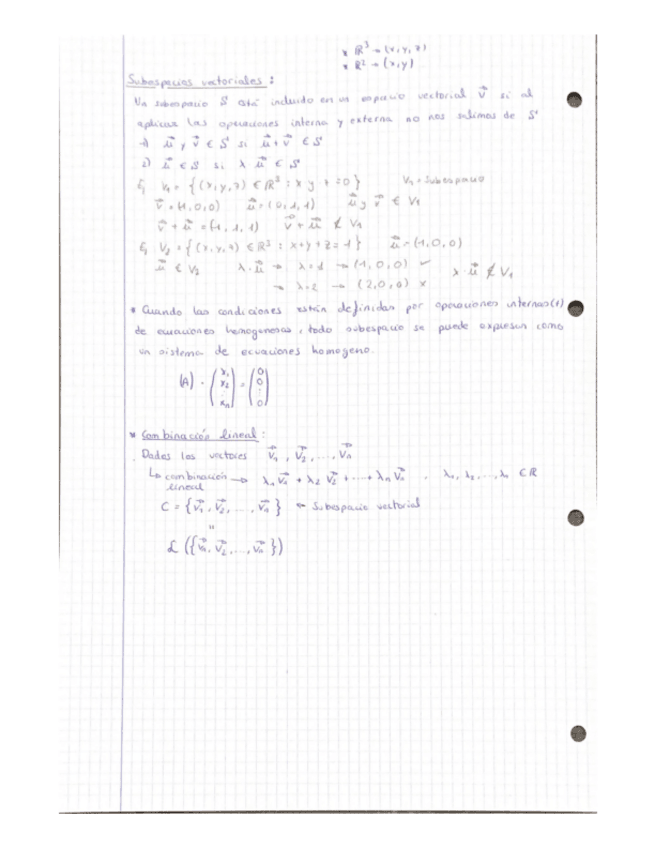 * ℝ³ → (x, y, z)
* ℝ² → (x, y)
Subespacios vectoriales :
Un subespacio S está incluido en un espacio vectorial V⃗ si al
aplicar las operaciones interna y externa no nos salimos de S
1) u⃗ y v⃗ ∈ S si u⃗ + v⃗ ∈ S
2) u⃗ ∈ S si λ u⃗ ∈ S
Ej V₁ = {(x, y, z) ∈ ℝ³ : x y z = 0} V₁ = Subespacio
v⃗ = (1, 0, 0) u⃗ = (0, 1, 1) u⃗ y v⃗ ∈ V₁
v⃗ + u⃗ = (1, 1, 1) v⃗ + u⃗ ∉ V₁
Ej V₂ = {(x, y, z) ∈ ℝ³ : x + y + z = 1} u⃗ = (1, 0, 0)
u⃗ ∈ V₂ λ · u⃗ → λ = 1 → (1, 0, 0) ✓ λ · u⃗ ∉ V₁
→ λ = 2 → (2, 0, 0) x
* Cuando las condiciones están definidas por operaciones internas (1)
de ecuaciones homogeneas, todo subespacio se puede expresar como
un sistema de ecuaciones homogeno.
(A) · (x₁ x₂ ⋮ xₙ) = (0 0 ⋮ 0)
* Combinación lineal :
. Dados los vectores v⃗₁, v⃗₂, ..., v⃗ₙ
↳ combinación → λ₁ v⃗₁ + λ₂ v⃗₂ + ... + λₙ v⃗ₙ , λ₁, λ₂, ..., λₙ ∈ ℝ
lineal
C = {v⃗₁, v⃗₂, ..., v⃗ₙ} ← Subespacio vectorial
"
L ({v⃗₁, v⃗₂, ..., v⃗ₙ})